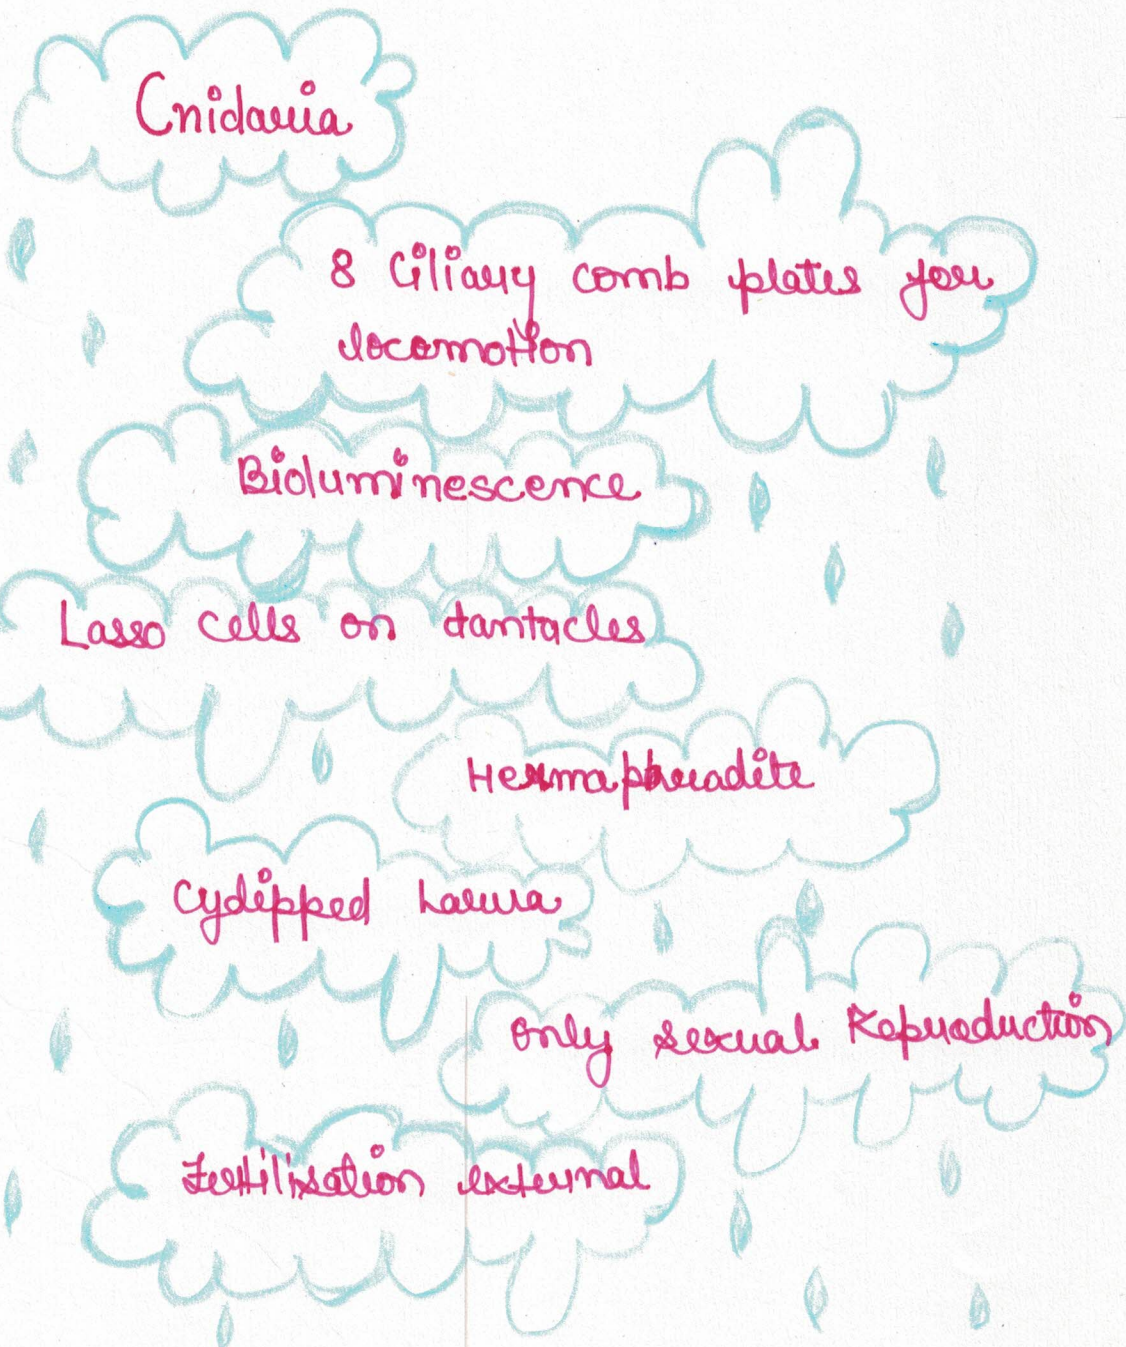 Cnidaria
8 Ciliary comb plates for
locomotion
Bioluminescence
Lasso cells on tantacles
Hermaphradite
Cydipped Larva
only sexual Reproduction
Fertilisation external